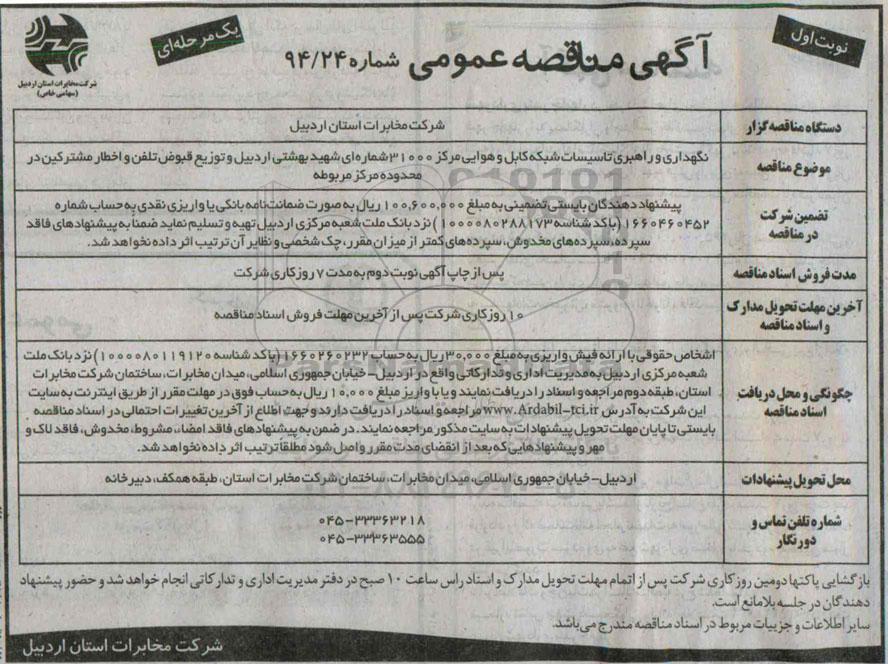 نوبت اول
آگهی مناقصه عمومی شماره ۹۴/۲۴
یک مرحله‌ای
شرکت مخابرات استان اردبیل
(سهامی خاص)
دستگاه مناقصه گزار
شرکت مخابرات استان اردبیل
موضوع مناقصه
نگهداری و راهبری تاسیسات شبکه کابل و هوایی مرکز ۳۱۰۰۰ شماره‌ای شهید بهشتی اردبیل و توزیع قبوض تلفن و اخطار مشترکین در
محدوده مرکز مربوطه
تضمین شرکت
در مناقصه
پیشنهاد دهندگان بایستی تضمینی به مبلغ ۱۰۰,۶۰۰,۰۰۰ ریال به صورت ضمانت نامه بانکی یا واریزی نقدی به حساب شماره
۱۶۶۰۴۶۰۴۵۲ (با کد شناسه ۱۰۰۰۰۸۰۲۸۸۱۷۳) نزد بانک ملت شعبه مرکزی اردبیل تهیه و تسلیم نماید ضمناً به پیشنهادهای فاقد
سپرده، سپرده‌های مخدوش، سپرده‌های کمتر از میزان مقرر، چک شخصی و نظایر آن ترتیب اثر داده نخواهد شد.
مدت فروش اسناد مناقصه
پس از چاپ آگهی نوبت دوم به مدت ۷ روز کاری شرکت
آخرین مهلت تحویل مدارک
و اسناد مناقصه
۱۰ روز کاری شرکت پس از آخرین مهلت فروش اسناد مناقصه
چگونگی و محل دریافت
اسناد مناقصه
اشخاص حقوقی با ارائه فیش واریزی به مبلغ ۳۰,۰۰۰ ریال به حساب ۱۶۶۰۲۶۰۲۳۲ (با کد شناسه ۱۰۰۰۰۸۰۱۱۹۱۲۰) نزد بانک ملت
شعبه مرکزی اردبیل به مدیریت اداری و تدارکاتی واقع در اردبیل - خیابان جمهوری اسلامی، میدان مخابرات، ساختمان شرکت مخابرات
استان، طبقه دوم مراجعه و اسناد را دریافت نمایند و یا با واریز مبلغ ۱۰,۰۰۰ ریال به حساب فوق در مهلت مقرر از طریق اینترنت به سایت
این شرکت به آدرس www.Ardabil-tci.ir مراجعه و اسناد را دریافت دارند و جهت اطلاع از آخرین تغییرات احتمالی در اسناد مناقصه
بایستی تا پایان مهلت تحویل پیشنهادات به سایت مذکور مراجعه نمایند. در ضمن به پیشنهادهای فاقد امضاء، مشروط، مخدوش، فاقد لاک و
مهر و پیشنهادهایی که بعد از انقضای مدت مقرر واصل شود مطلقاً ترتیب اثر داده نخواهد شد.
محل تحویل پیشنهادات
اردبیل - خیابان جمهوری اسلامی، میدان مخابرات، ساختمان شرکت مخابرات استان، طبقه همکف، دبیرخانه
شماره تلفن تماس و
دورنگار
۰۴۵-۳۳۳۶۳۲۱۸
۰۴۵-۳۳۳۶۳۵۵۵
بازگشایی پاکتها دومین روز کاری شرکت پس از اتمام مهلت تحویل مدارک و اسناد راس ساعت ۱۰ صبح در دفتر مدیریت اداری و تدارکاتی انجام خواهد شد و حضور پیشنهاد
دهندگان در جلسه بلامانع است.
سایر اطلاعات و جزییات مربوط در اسناد مناقصه مندرج می‌باشد.
شرکت مخابرات استان اردبیل